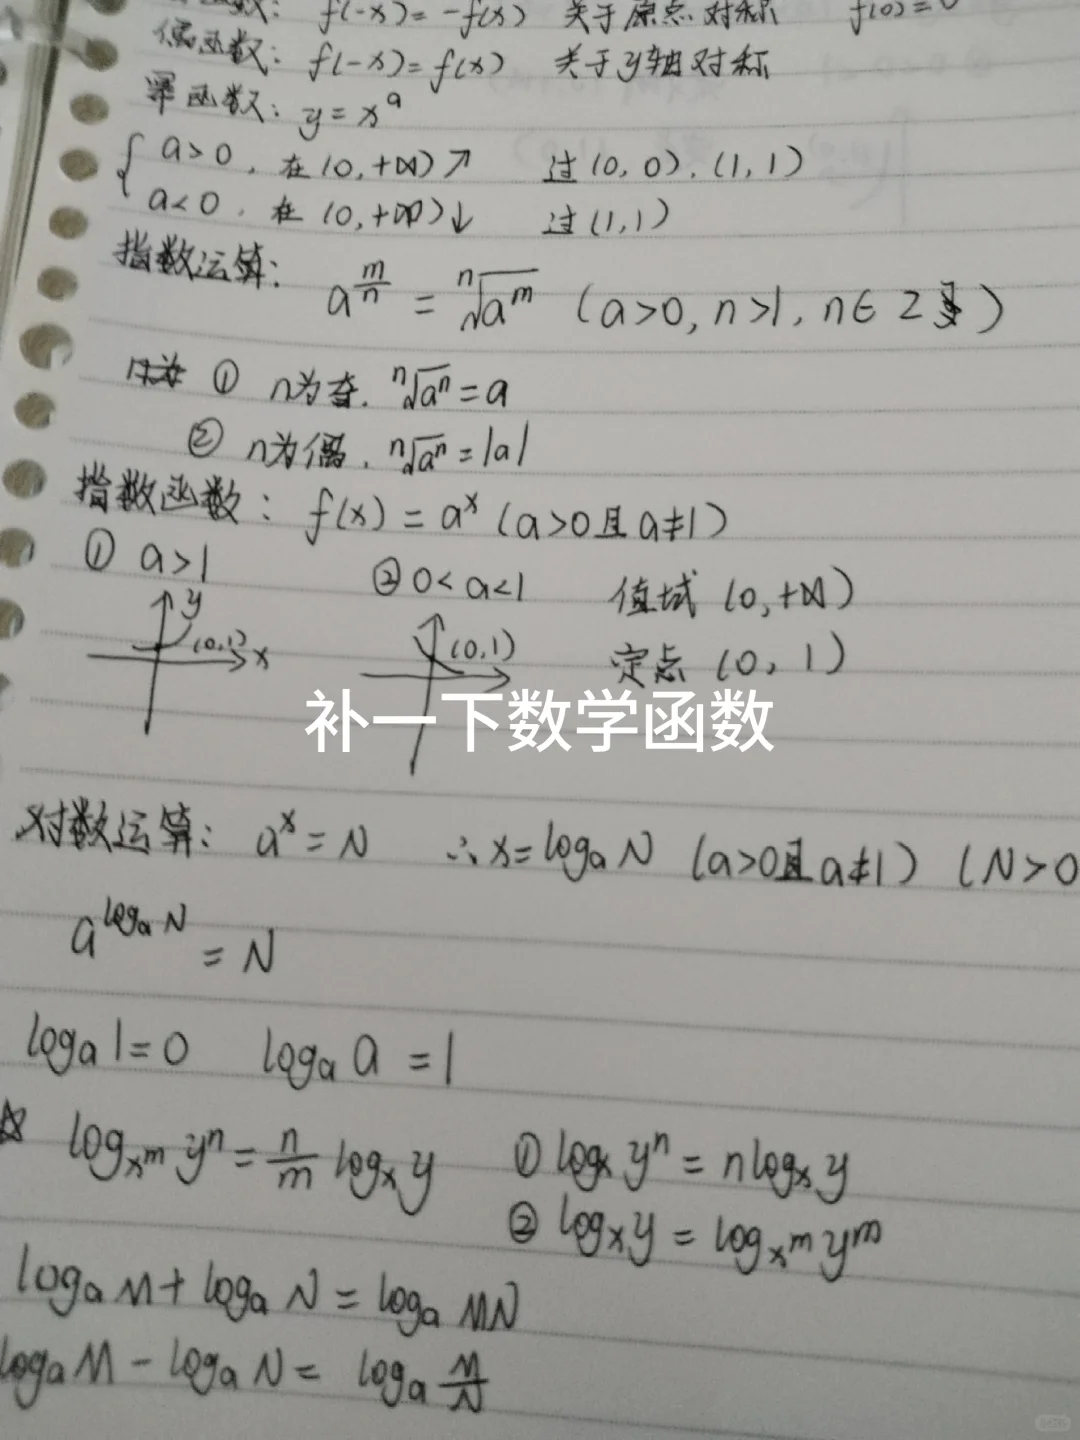 函数: f(-x)=-f(x) 关于原点对称 f(0)=0
偶函数: f(-x)=f(x) 关于y轴对称
幂函数: y=x^a
{ a>0, 在(0,+∞)↗ 过(0,0).(1,1)
a<0. 在(0,+∞)↓ 过(1,1)
指数运算: a^(m/n) = ⁿ√(a^m) (a>0, n>1, n∈Z)
① n为奇. ⁿ√(a^n)=a
② n为偶. ⁿ√(a^n)=|a|
指数函数: f(x)=a^x (a>0且a≠1)
① a>1 ② 0<a<1 值域 (0,+∞)
y (0,1) x (0,1) 定点 (0,1)
补一下数学函数
对数运算: a^x=N ∴x=log_a N (a>0且a≠1) (N>0
a^(log_a N) = N
log_a 1=0 log_a a =1
☆ log_(x^m) y^n = n/m log_x y ① log_x y^n = n log_x y
② log_x y = log_(x^m) y^m
log_a M + log_a N = log_a MN
log_a M - log_a N = log_a M/N